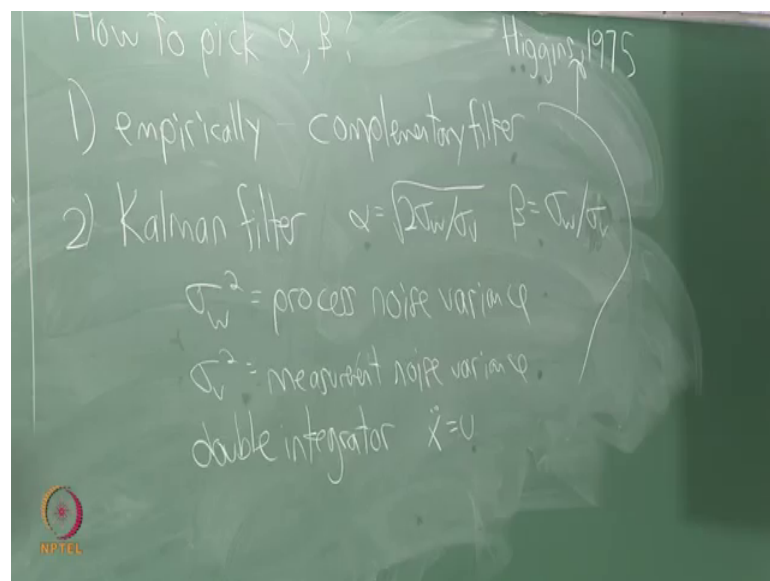 How to pick α, β?
Higgins, 1975
1) empirically - complementary filter
2) Kalman filter α = √2σw/σv β = σw/σv
σw² = process noise variance
σv² = measurement noise variance
double integrator ẍ = u
NPTEL